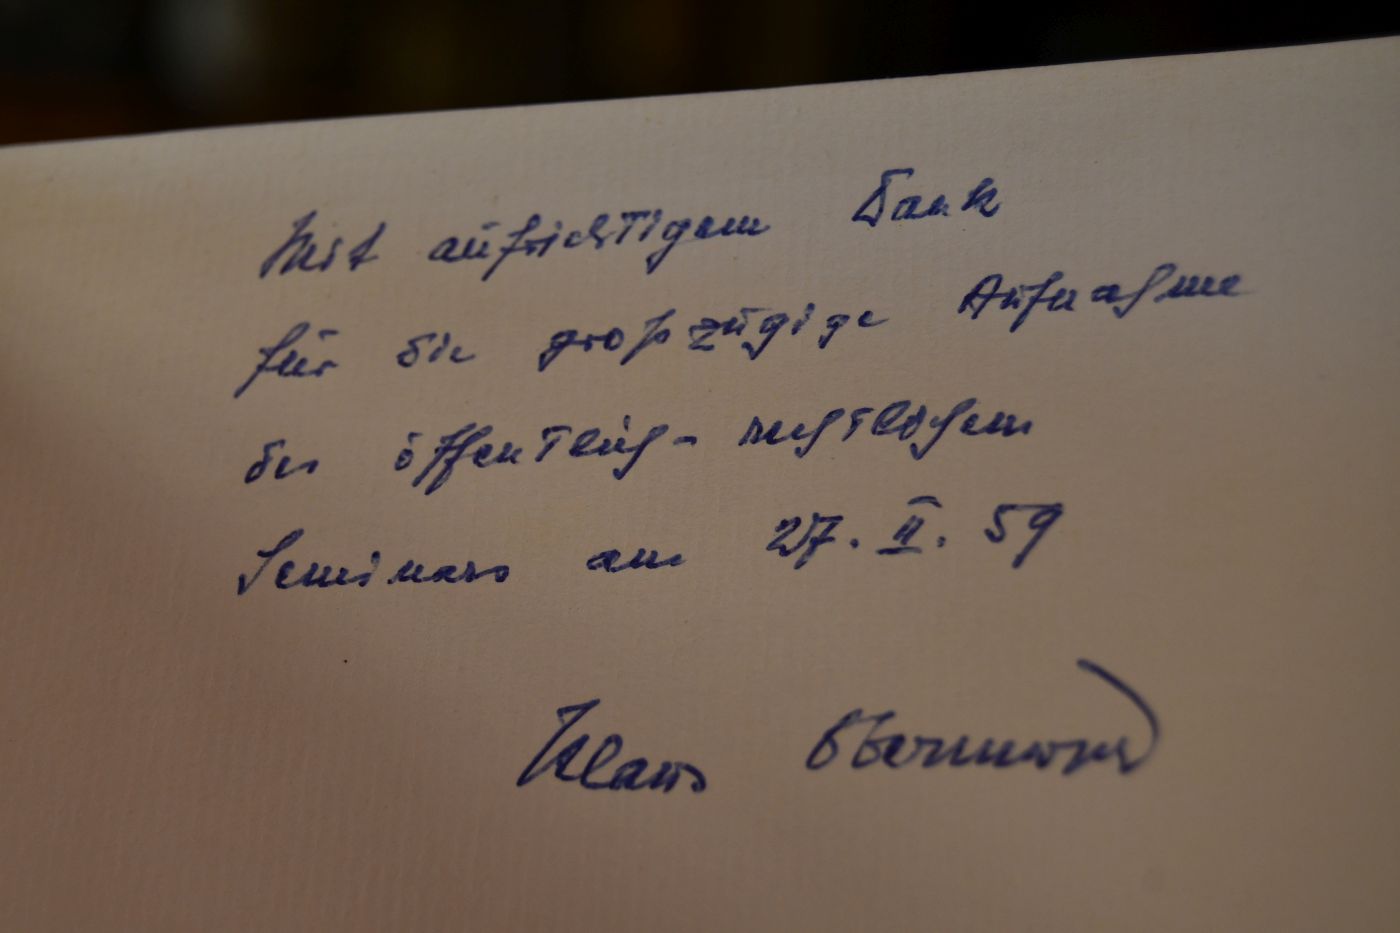 Mit aufrichtigem Dank
für die großzügige Aufnahme
des öffentlich-rechtlichen
Seminars am 27. II. 59
Klaus Obermayer